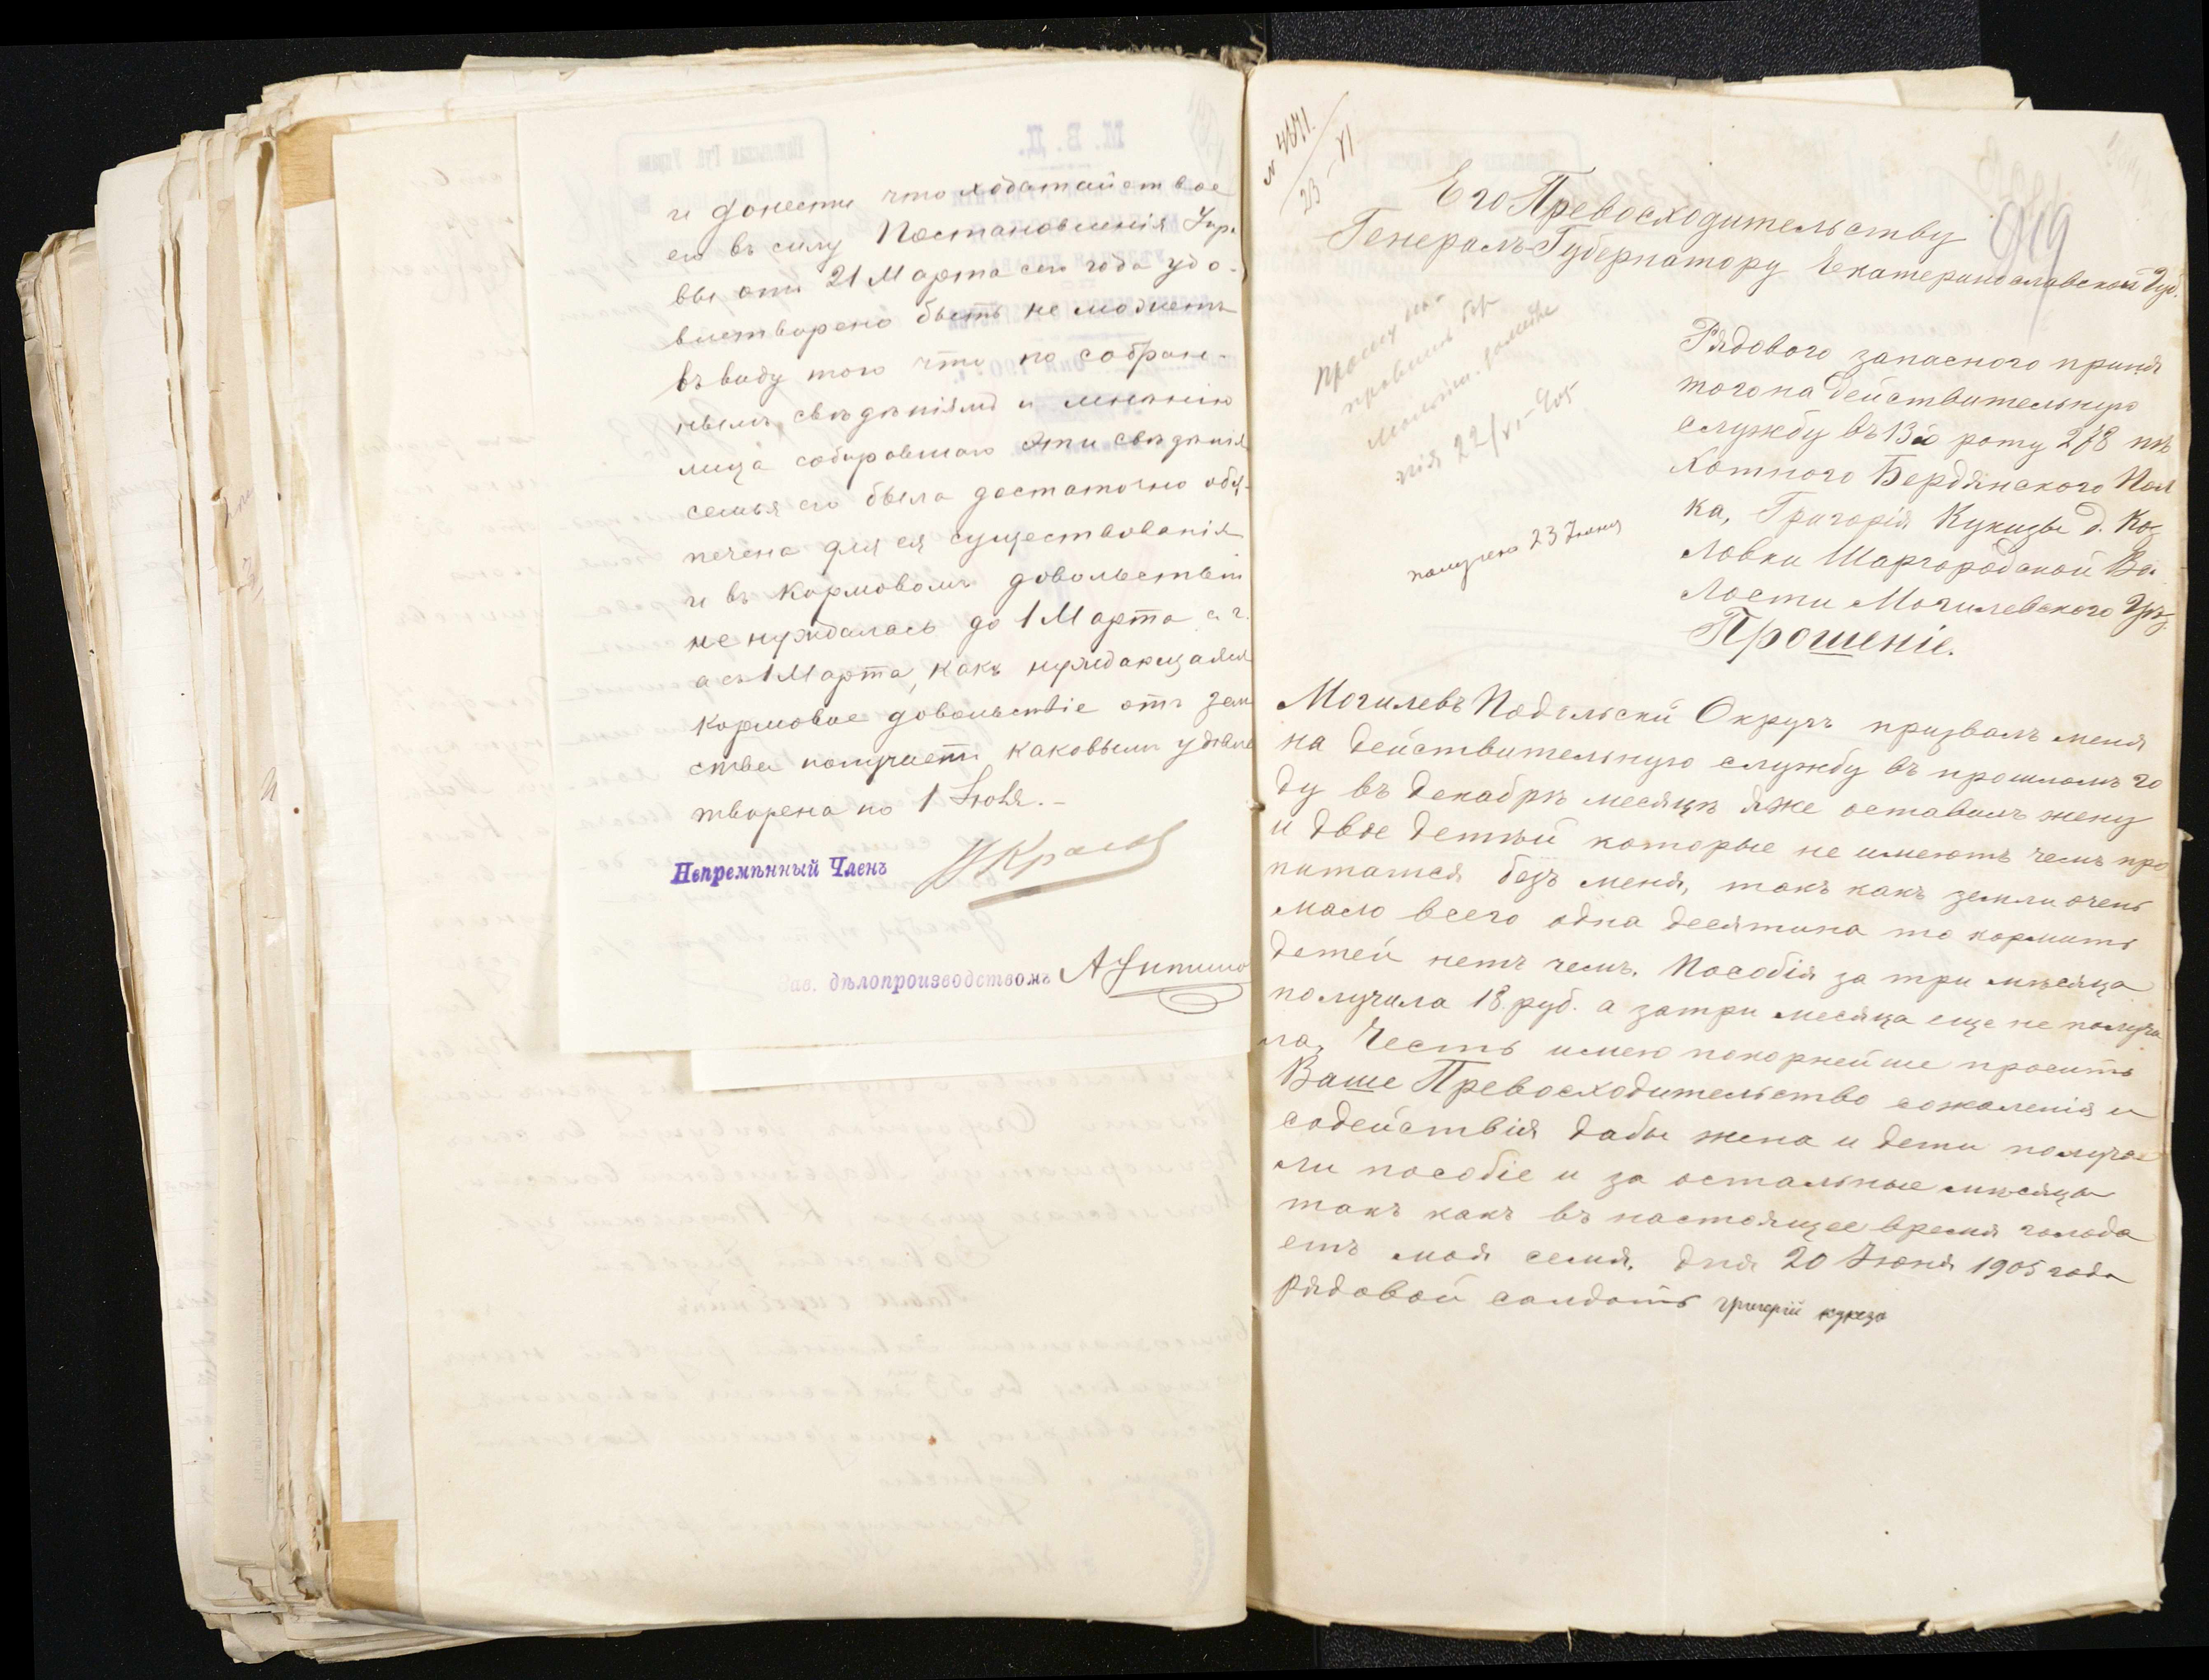 и донести что ходатайство
его въ силу Постановленія Упра
вы отъ 21 Марта сего года удо-
влетворено быть не можетъ
въ виду того что по собран-
нымъ свѣдѣніямъ и мнѣнію
лица собиравшаго эти свѣдѣнія
семья его была достаточно обез-
печена для ея существованія
и въ кормовомъ довольствіи
не нуждалась до 1 Марта с. г.
а съ 1 Марта, какъ нуждающаяся
кормовое довольствіе отъ зем
ства получаетъ каковымъ удовле
творена по 1 Іюля.-
Непремѣнный Членъ
Зав. дѣлопроизводствомъ
23 VI
Его Превосходительству
Генералъ-Губернатору Екатеринославской Губ.
919
Прошу
22/VI-905
получено 23 Іюня
Рядового запасного приня
того на действительную
службу въ 13ю роту 278 пѣ
хотного Бердянского Пол
ка, Григорія Кукизы д. Коз
ловки Шаргородской Во
лости Могилевского Уѣз.
Прошеніе.
Могилевъ Подольскй Округъ призвалъ меня
на действительную службу въ прошломъ го
ду въ декабрѣ месяцѣ яже оставилъ жену
и двое детѣй которые не имеютъ чемъ про
питатся безъ меня, такъ какъ земли очень
мало всего одна десятина то кормить
детей нетъ чемъ. Пособія за три мѣсяца
получила 18 руб. а за три месяца еще не получи
ла. Честь имею покорнейше просить
Ваше Превосходительство сожаленія и
содействія дабы жена и дети получа
ли пособіе и за остальные мѣсяцы
такъ какъ въ настоящее время голода
етъ моя семия. Дня 20 Іюня 1905 года
Рядовой солдатъ григорій кукиза